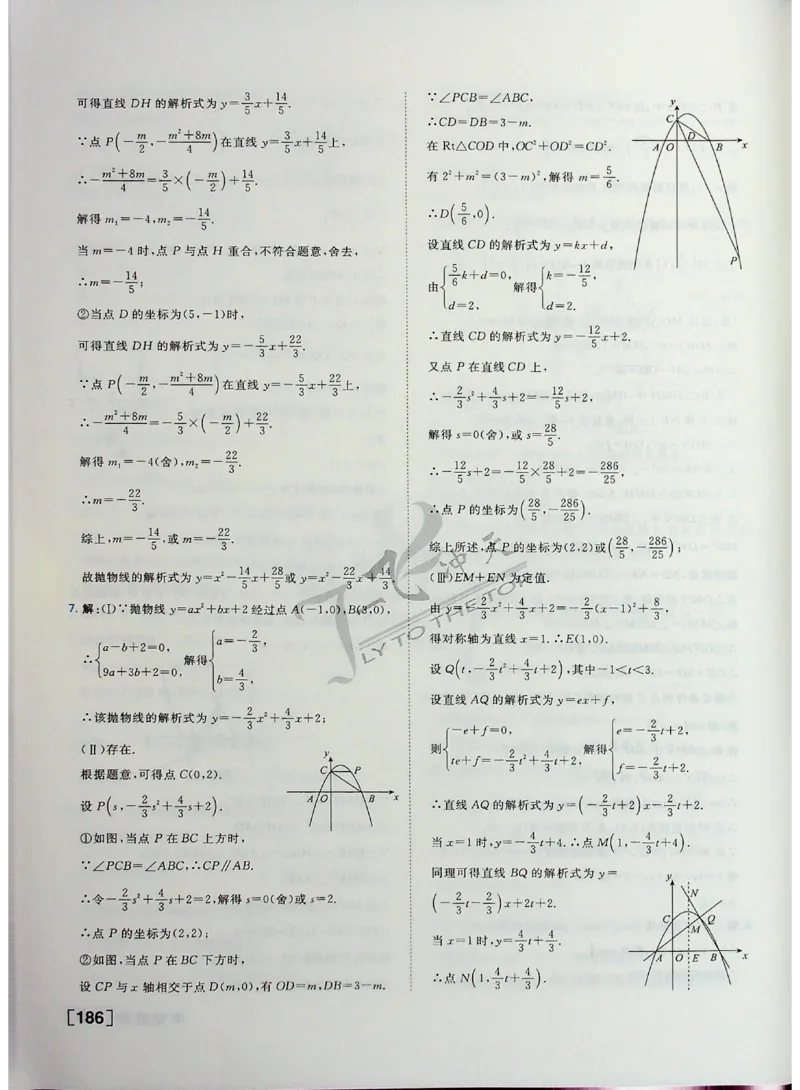 可得直线 DH 的解析式为 y=3/5x+14/5.
∵点 P(-m/2,-(m²+8m)/4)在直线 y=3/5x+14/5上,
∴-(m²+8m)/4=3/5×(-m/2)+14/5.
解得 m₁=-4,m₂=-14/5.
当 m=-4 时,点 P 与点 H 重合,不符合题意,舍去,
∴m=-14/5;
②当点 D 的坐标为(5,-1)时,
可得直线 DH 的解析式为 y=-5/3x+22/3.
∵点 P(-m/2,-(m²+8m)/4)在直线 y=-5/3x+22/3上,
∴-(m²+8m)/4=-5/3×(-m/2)+22/3.
解得 m₁=-4(舍),m₂=-22/3.
∴m=-22/3.
综上,m=-14/5,或 m=-22/3.
故抛物线的解析式为 y=x²-14/5x+28/5或 y=x²-22/3x+44/3.
7. 解:(Ⅰ)∵抛物线 y=ax²+bx+2 经过点 A(-1,0),B(3,0),
∴{a-b+2=0, 9a+3b+2=0, 解得{a=-2/3, b=4/3,
∴该抛物线的解析式为 y=-2/3x²+4/3x+2;
(Ⅱ)存在.
根据题意,可得点 C(0,2).
设 P(s,-2/3s²+4/3s+2).
①如图,当点 P 在 BC 上方时,
∵∠PCB=∠ABC,∴CP∥AB.
∴令-2/3s²+4/3s+2=2,解得 s=0(舍)或 s=2.
∴点 P 的坐标为(2,2);
②如图,当点 P 在 BC 下方时,
设 CP 与 x 轴相交于点 D(m,0),有 OD=m,DB=3-m.
y
C P
A O B x
[186]
∵∠PCB=∠ABC,
∴CD=DB=3-m.
在 Rt△COD 中,OC²+OD²=CD².
有 2²+m²=(3-m)²,解得 m=5/6.
∴D(5/6,0).
设直线 CD 的解析式为 y=kx+d,
由{5/6k+d=0, d=2, 解得{k=-12/5, d=2.
∴直线 CD 的解析式为 y=-12/5x+2.
又点 P 在直线 CD 上,
∴-2/3s²+4/3s+2=-12/5s+2,
解得 s=0(舍),或 s=28/5.
∴-12/5s+2=-12/5×28/5+2=-286/25,
∴点 P 的坐标为(28/5,-286/25).
综上所述,点 P 的坐标为(2,2)或(28/5,-286/25);
(Ⅲ)EM+EN 为定值.
由 y=-2/3x²+4/3x+2=-2/3(x-1)²+8/3,
得对称轴为直线 x=1.∴E(1,0).
设 Q(t,-2/3t²+4/3t+2),其中-1<t<3.
设直线 AQ 的解析式为 y=ex+f,
则{-e+f=0, te+f=-2/3t²+4/3t+2, 解得{e=-2/3t+2, f=-2/3t+2.
∴直线 AQ 的解析式为 y=(-2/3t+2)x-2/3t+2.
当 x=1 时,y=-4/3t+4.∴点 M(1,-4/3t+4).
同理可得直线 BQ 的解析式为 y=
(-2/3t-2/3)x+2t+2.
当 x=1 时,y=4/3t+4/3.
∴点 N(1,4/3t+4/3).
y
C
D
A O B x
P
y
N
C Q
M
A O E B x
飞冲天
FLY TO THE TOP